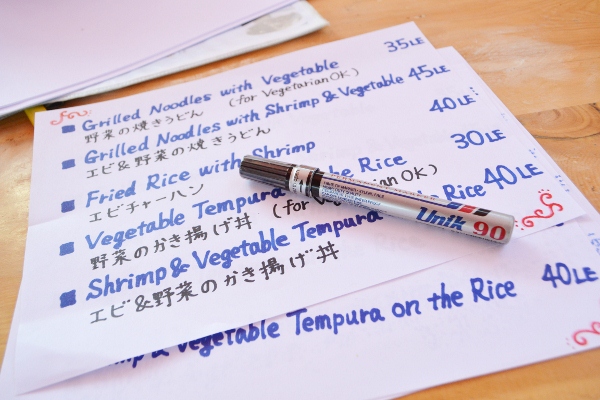 Grilled Noodles with Vegetable 35LE
野菜の焼きうどん (for Vegetarian OK)
Grilled Noodles with Shrimp & Vegetable 45LE
エビ&野菜の焼きうどん
Fried Rice with Shrimp 40LE
エビチャーハン
Vegetable Tempura the Rice 30LE
野菜のかき揚げ丼 (for rian OK)
Shrimp & Vegetable Tempura Rice 40LE
エビ&野菜のかき揚げ丼
Vegetable Tempura on the Rice 40LE
Unik 90